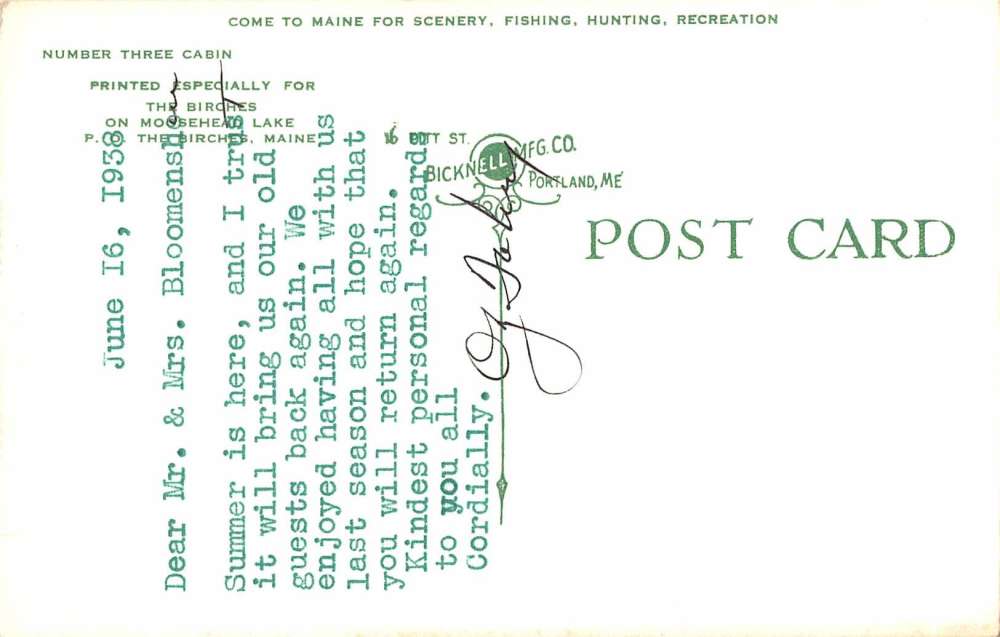 COME TO MAINE FOR SCENERY, FISHING, HUNTING, RECREATION
NUMBER THREE CABIN
PRINTED ESPECIALLY FOR
THE BIRCHES
ON MOOSEHEAD LAKE
P. O. THE BIRCHES, MAINE
BICKNELL MFG. CO.
PORTLAND, ME
POST CARD
June I6, I938
Dear Mr. & Mrs. Bloomenshon
Summer is here, and I trust
it will bring us our old
guests back again. We
enjoyed having all with us
last season and hope that
you will return again.
Kindest personal regards
to you all
Cordially.